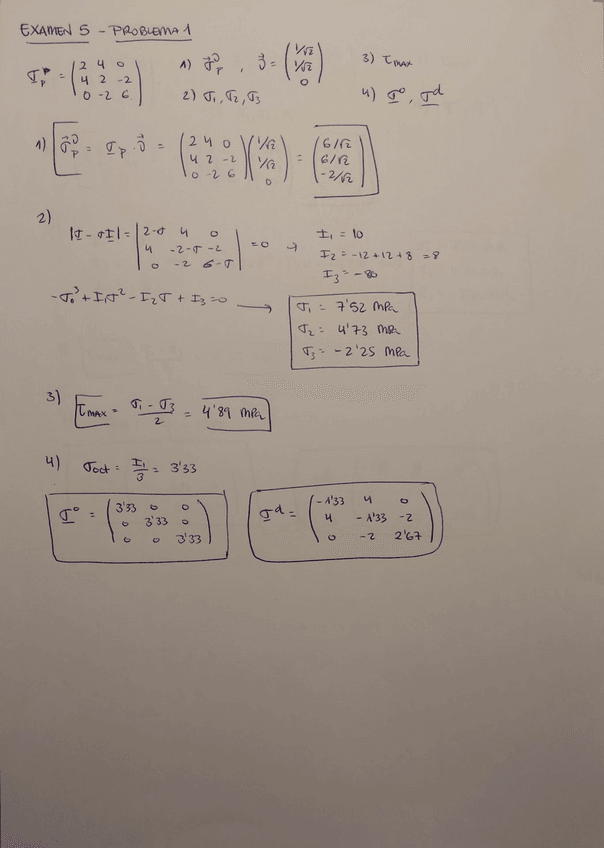 EXAMEN 5 - PROBLEMA 1
σ_p^p = (2 4 0; 4 2 -2; 0 -2 6) 1) σ⃗_p^υ , υ⃗ = (1/√2; 1/√2; 0) 3) τ MAX
2) σ₁, σ₂, σ₃ 4) σ⁰, σ^d
1) σ⃗_p^υ = σ_p · υ⃗ = (2 4 0; 4 2 -2; 0 -2 6) (1/√2; 1/√2; 0) = (6/√2; 6/√2; -2/√2)
2)
|σ - σI| = |2-σ 4 0; 4 -2-σ -2; 0 -2 6-σ| = 0 → I₁ = 10
I₂ = -12+12+8 = 8
I₃ = -80
-σ³ + I₁σ² - I₂σ + I₃ = 0 → σ₁ = 7'52 MPa
σ₂ = 4'73 MPa
σ₃ = -2'25 MPa
3) τ MAX = (σ₁ - σ₃)/2 = 4'89 MPa
4) σoct = I₁/3 = 3'33
σ⁰ = (3'33 0 0; 0 3'33 0; 0 0 3'33) σ^d = (-1'33 4 0; 4 -1'33 -2; 0 -2 2'67)